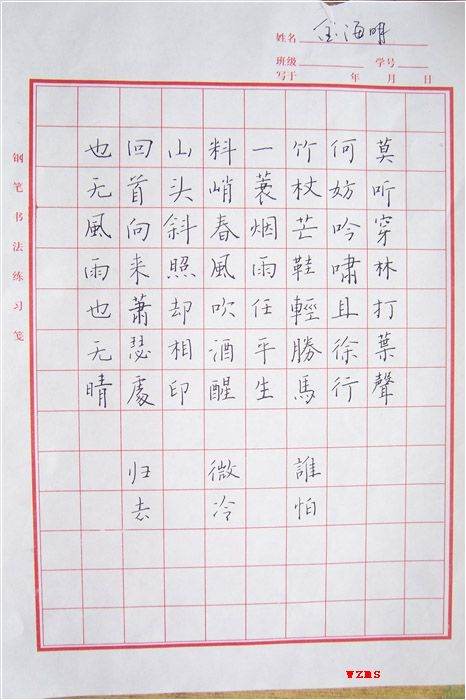 姓名 金海明
班级 学号
写于 年 月 日
钢笔书法练习笺
莫听穿林打葉聲
何妨吟嘯且徐行
竹杖芒鞋輕勝馬 誰怕
一蓑烟雨任平生
料峭春風吹酒醒 微冷
山头斜照却相印
回首向来蕭瑟處 归去
也无風雨也无晴
wzms